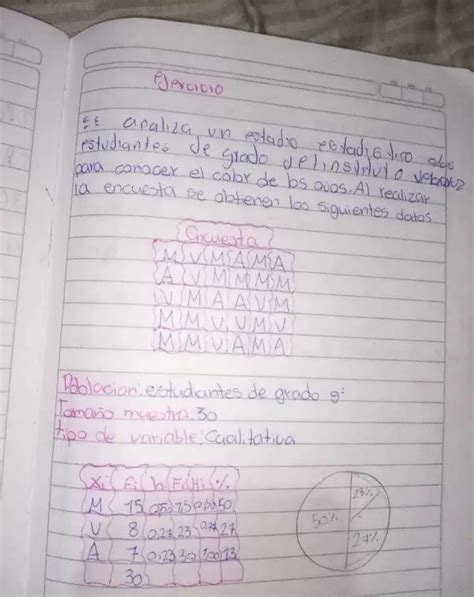 ejercicio
se analiza un estadio estadistico a los
estudiantes de grado del instituto
para conocer el color de los ojos. Al realizar
la encuesta se obtienen los siguientes datos
Encuesta
M V M A M A
A V M M M M
V M A A V M
M M V V M V
M M V A M A
Poblacion: estudiantes de grado 9º
Tamaño muestra: 30
tipo de variable: Cualitativa
Xi Fi h Fi Hi %
M 15 0,5 15 0,50 50
V 8 0,27 23 0,77 27
A 7 0,23 30 1,00 23
30
23%
50%
27%